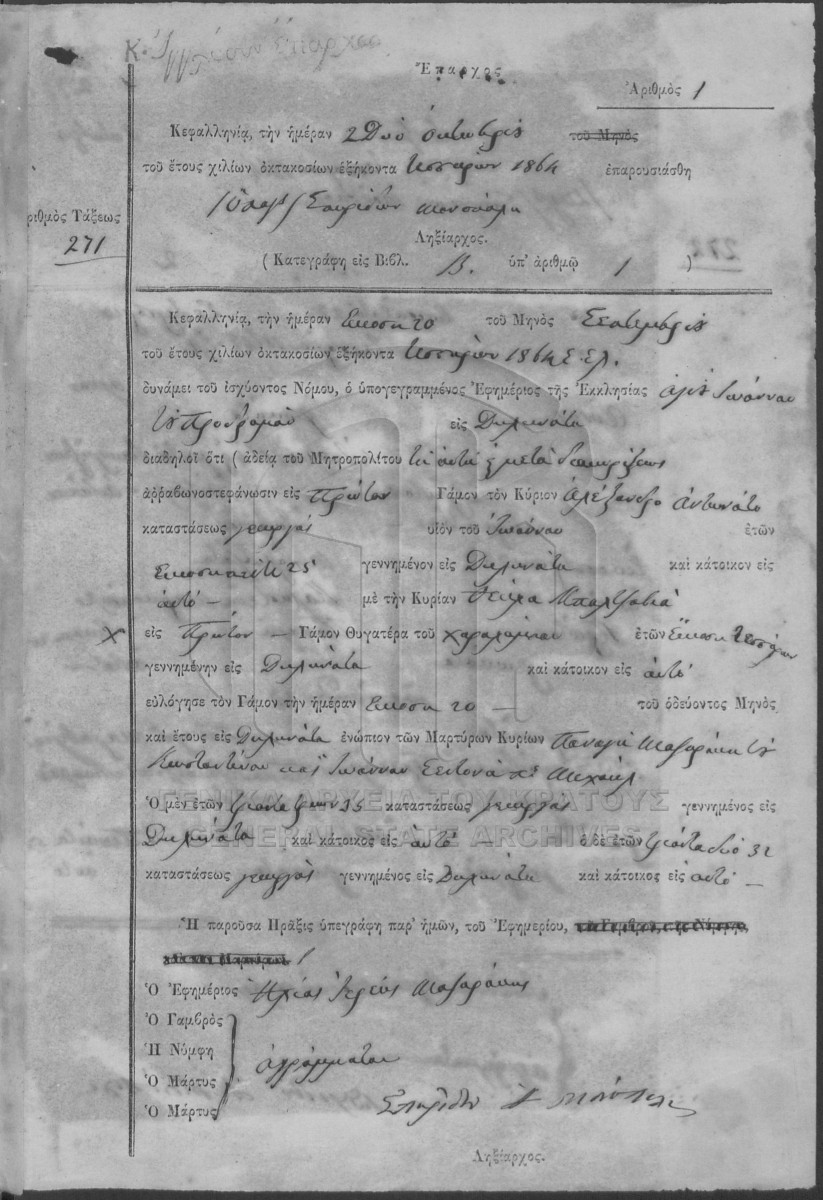 Ἔπαρχος
Ἀριθμὸς 1
Κεφαλληνίᾳ, τὴν ἡμέραν 2 Δύο ὀκτωβρίȣ τοῦ Μηνὸς
τοῦ ἔτους χιλίων ὀκτακοσίων ἑξήκοντα τεσσάρων 1864 ἐπαρουσιάσθη
Σπυρίδων
Ἀριθμὸς Τάξεως
271
Ληξίαρχος.
( Κατεγράφη εἰς Βιβλ. Β. ὑπ' ἀριθμῷ 1 )
Κεφαλληνίᾳ, τὴν ἡμέραν Εικοσι 20 τοῦ Μηνὸς Σεπτεμβρίȣ
τοῦ ἔτους χιλίων ὀκτακοσίων ἑξήκοντα τεσσάρων 1864 Ε.Ε λ.
δυνάμει τοῦ ἰσχύοντος Νόμου, ὁ ὑπογεγραμμένος Ἐφημέριος τῆς Ἐκκλησίας ἁγίȣ Ἰωάννου
τȣ Προδρόμου εἰς Διλινάτα
διαδηλοῖ ὅτι ( ἀδείᾳ τοῦ Μητροπολίτου
ἀῤῥαβωνοστεφάνωσιν εἰς Πρῶτον Γάμον τὸν Κύριον Ἀλέξανδρο Αντωνάτο
καταστάσεως γεωργός υἱὸν τοῦ Ἰωάννου ἐτῶν
Εικοσιπέντε 25 γεννημένον εἰς Διλινάτα καὶ κάτοικον εἰς
αὐτό – μὲ τὴν Κυρίαν Μπαλτσατιά
Χ εἰς Πρῶτον – Γάμον Θυγατέρα τοῦ χαραλάμπου ἐτῶν Είκοσι τεσσάρων
γεννημένην εἰς Διλινάτα καὶ κάτοικον εἰς αὐτό
εὐλόγησε τὸν Γάμον τὴν ἡμέραν Εικοσι 20 – τοῦ ὁδεύοντος Μηνὸς
καὶ ἔτους εἰς Διλινάτα ἐνώπιον τῶν Μαρτύρων Κυρίων Παναγή Μαζαράκη τȣ
Κωσταντίνου καὶ Ἰωάννου Μιχαήλ
Ὁ μὲν ἐτῶν 35 καταστάσεως γεωργός γεννημένος εἰς
Διλινάτα καὶ κάτοικος εἰς αὐτό ὁ δὲ ἐτῶν τριάντα δύο 32
καταστάσεως γεωργός γεννημένος εἰς Διλινάτα καὶ κάτοικος εἰς αὐτό –
Ἡ παροῦσα Πρᾶξις ὑπεγράφη παρ' ἡμῶν, τοῦ Ἐφημερίου, τοῦ Γαμβροῦ, τῆς Νύμφης,
καὶ τῶν Μαρτύρων.
Ὁ Ἐφημέριος Ηλίας Ἱερεύς Μαζαράκης
Ὁ Γαμβρὸς
Ἡ Νύμφη
ἀγράμματοι
Ὁ Μάρτυς
Ὁ Μάρτυς
Σπυρίδων
Ληξίαρχος.
ΓΕΝΙΚΑ ΑΡΧΕΙΑ ΤΟΥ ΚΡΑΤΟΥΣ
GENERAL STATE ARCHIVES